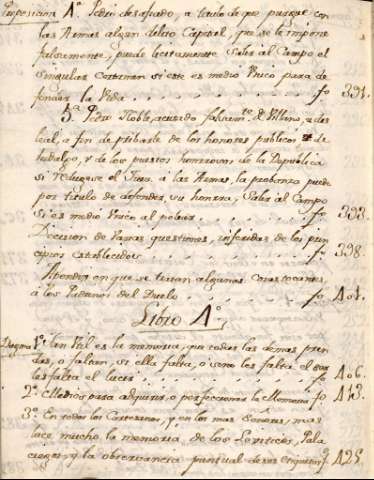 Proposicion 4ª. Pedro desafiado, a titulo de que purgue con
las Armas algun delito Capital, que se le impone
falsamente, puede licitamente Salir al Campo el
singular Certamen si este es medio Unico para de
fender la Vida . . . . . . . . . fo 331.
5ª. Pedro Noble, acusado falsamte. de Villano, o des
leal, a fin de pribarle de los honores publicos de
hidalgo, y de los puestos honrrosos de la Republica
si reduxese el Juez a las Armas, la probanza puede
por titulo de defender su honra, Salir al Campo
Si es medio Unico al . . . . . . . fo 333.
Decision de Varias questiones, inferidas de los prin
cipios establecidos . . . . . . . . 338.
Apendiz en que se tratan algunas cosas tocantes
a los Padrinos del Duelo . . . . . . fo 401.
Libro 4º.
Dogma 1º. Tan Util es la memoria, que todas las demas pren
das, o faltan, si ella falta, o sino les falta el ser
les falta el lucir . . . . . . . . fo 406.
2º. Medios para adquirir, o perfeccionar la Memoria fo 413.
3º. En todos los Cortesanos, y en los mas Señores, mas
luce mucho la memoria, de los Lenticos, Pala
ciegos, y la observancia puntual de sus etiquetas fo 425.